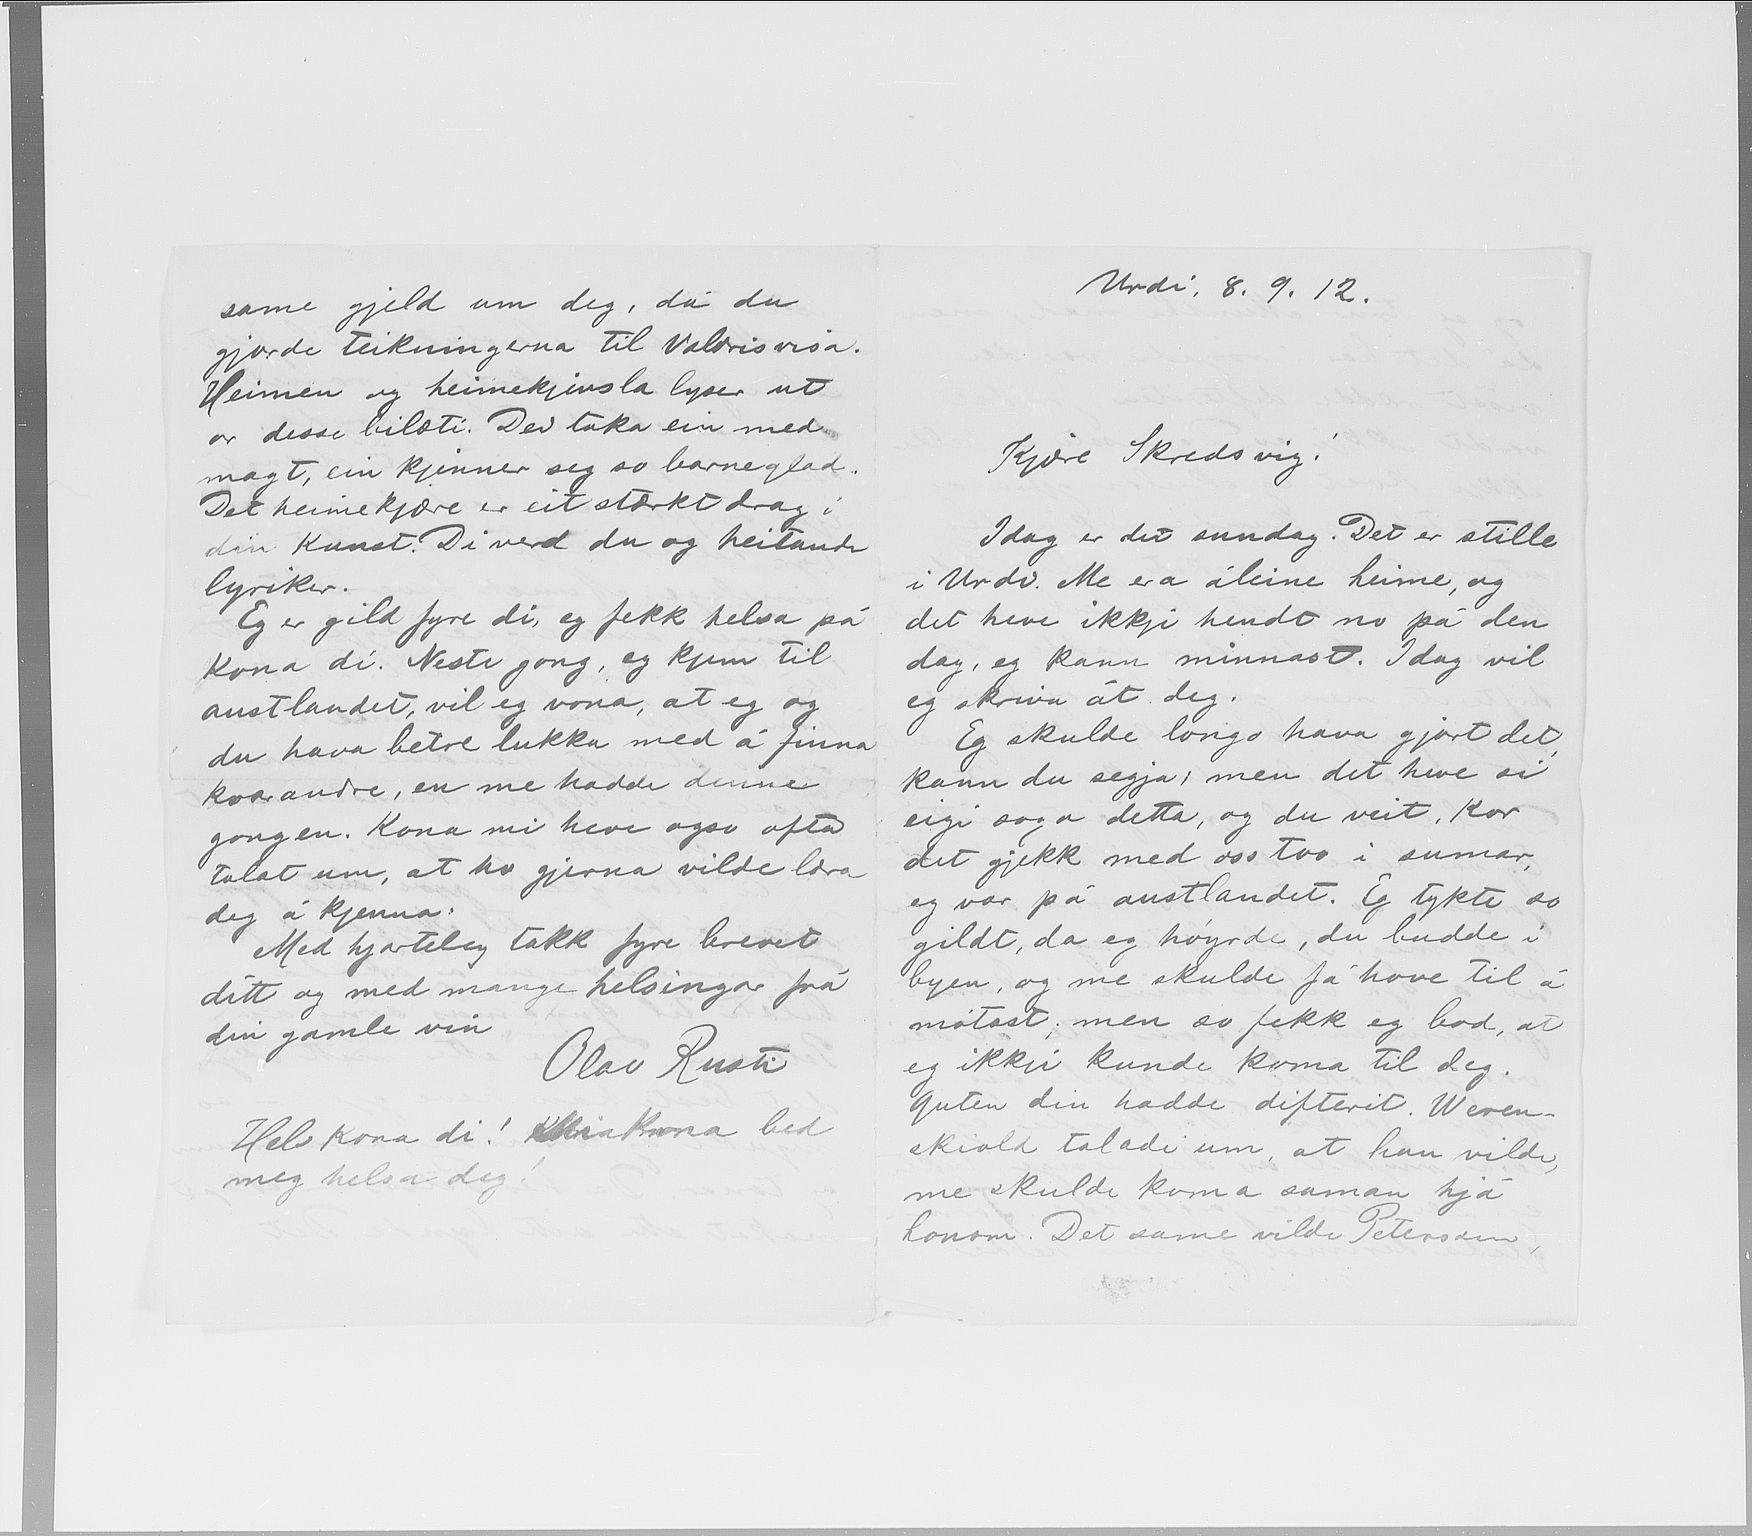 Urdi, 8. 9. 12.
Kjære Skredsvig!
Idag er det sundag. Det er stille
i Urdi. Me era åleine heime, og
det heve ikkji hendt no på den
dag, eg kann minnast. Idag vil
eg skriva åt deg.
Eg skulde longo hava gjort det,
kann du segja, men det heve si
eigi soga detta, og du veit, kor
det gjekk med oss too i sumar,
eg var på austlandet. Eg tykte so
gildt, da eg høyrde, du budde i
byen, og me skulde få hove til å
møtast; men so fekk eg bod, at
eg ikkji kunde koma til deg.
Guten din hadde difterit. Weren-
skiold taladi um, at han vilde,
me skulde koma saman hjå
honom. Det same vilde Peterssen,
same gjeld um deg, då du
gjorde teikningerna til Valdrisvisa.
Heimen og heimekjensla lyser ut
or desse bilæti. Dei taka ein med
magt, ein kjenner seg so barneglad.
Det heimekjære er eit stærkt drag i
din Kunst. Di verd du og heitande
lyriker.
Eg er gild fyre di, eg fekk helsa på
Kona di. Neste gong, eg kjem til
austlandet, vil eg vona, at eg og
du hava betre lukka med å finna
kvarandre, en me hadde denne
gongen. Kona mi heve ogso ofta
talat um, at ho gjerna vilde læra
deg å kjenna.
Med hjarteleg takk fyre brevet
ditt og med mange helsingar frå
din gamle vin
Olav Rusti
Hels kona di! Kona bed
meg helsa deg!